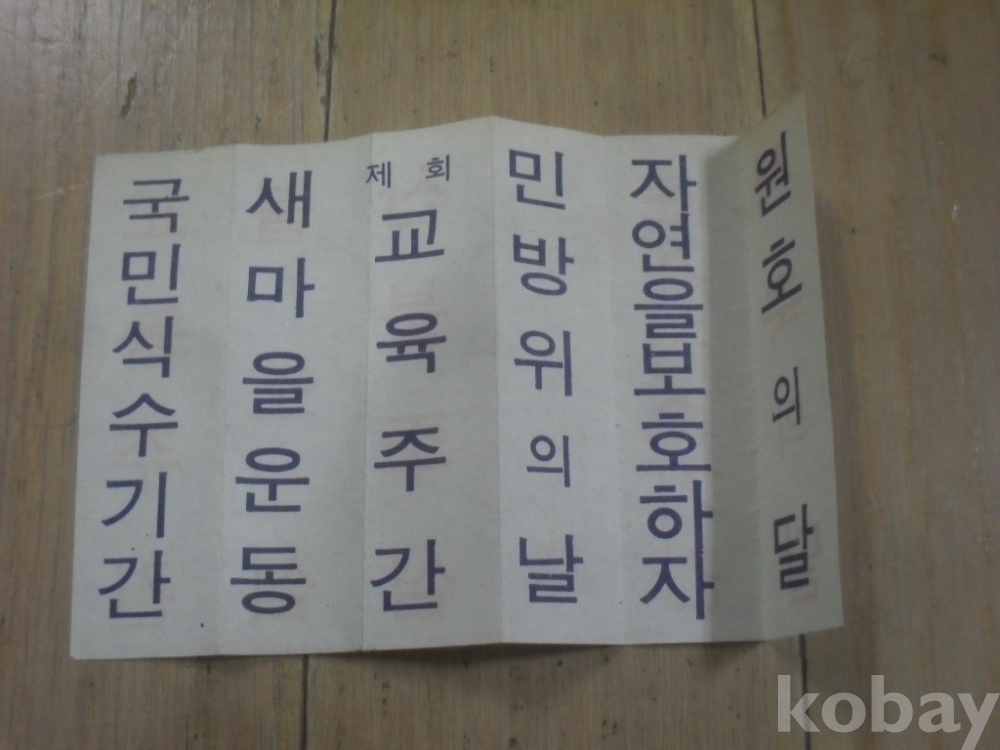 국민식수기간
새마을운동
제 회
교육주간
민방위의날
자연을보호하자
원호의달
kobay